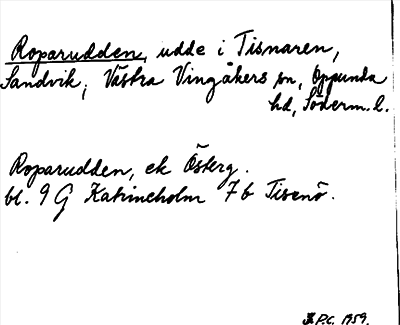 Roparudden, udde i Tisnaren,
Sandvik, Västra Vingåkers sn, Oppunda
hd, Söderm. l.
Roparudden, ek Österg.
bl. 9 G Katrineholm 7 b Tisenö.
P.C. 1959.